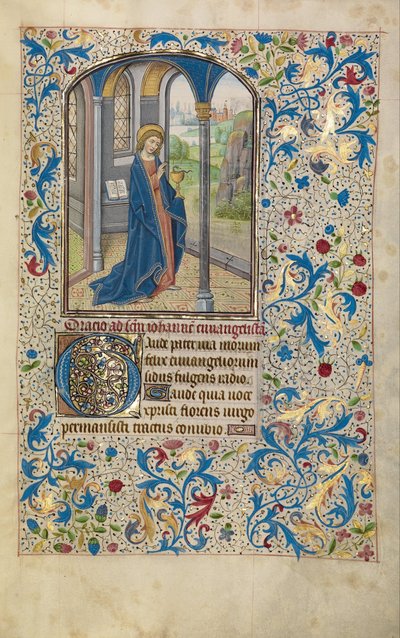 Oracio ad sc̄m iohannē euuangelistā
Gaude pater via morum
felix euuangeliorum
sidus fulgens radio.
Gaude quia voce
xpristi florens virgo
permansisti tinctus conubio.